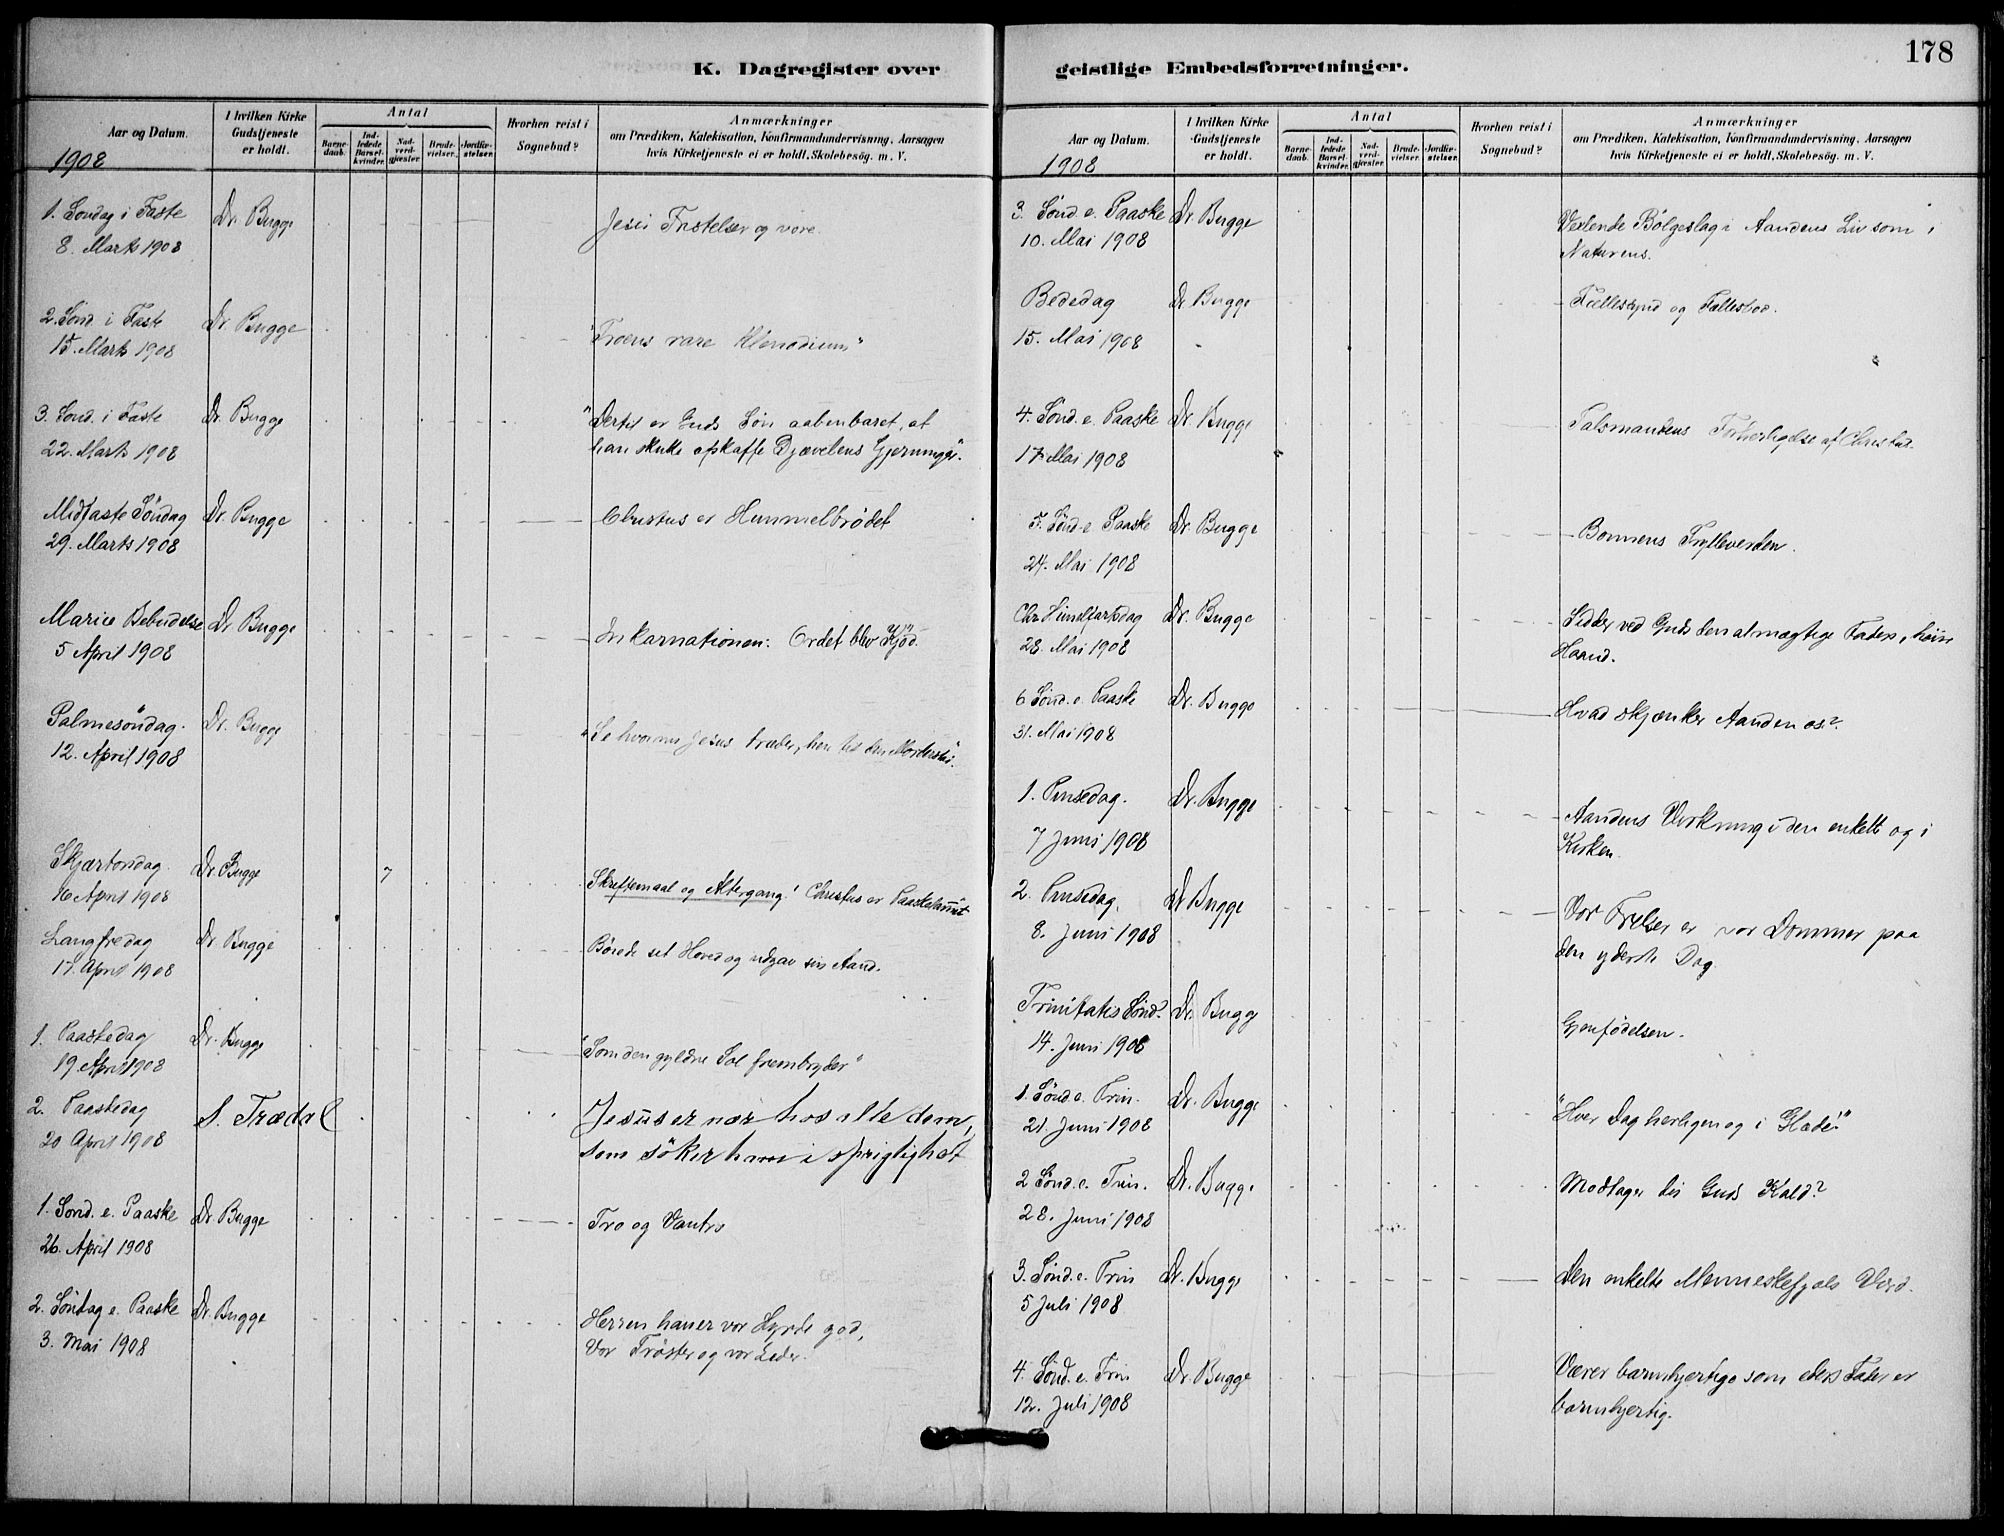 K. Dagregister over
Aar og Datum.
I hvilken Kirke Gudstjeneste er holdt.
Antal
Barnedaab.
Indledede Barselkvinder.
Nadverdgjæster.
Brudevielser.
Jordfæstelser.
Hvorhen reist i Sognebud?
Anmærkninger
om Prædiken, Katekisation, Konfirmandundervisning, Aarsagen
hvis Kirketjeneste ei er holdt, Skolebesøg. m. V.
1908
1. Søndag i Faste Dr. Bugge Jesu Fristelser og vore.
8. Marts 1908
2. Sønd. i Faste Dr. Bugge "Troens rare Klenodium"
15. Marts 1908
3. Sønd. i Faste Dr. Bugge "Dertil er Guds Søn aabenbaret, at
22. Marts 1908 han skulle afskaffe Djævelens Gjerninger".
Midfaste Søndag Dr. Bugge Christus er Himmelbrødet
29. Marts 1908
Mariæ Bebudelse Dr. Bugge Inkarnationen: Ordet blev Kjød.
5 April 1908
Palmesøndag. Dr. Bugge "Se hvorner Jesus træder, hen til den Mordersti".
12. April 1908
Skjærtorsdag Dr. Bugge 7 Skriftemaal og Altergang! Christus er Paaskelammet
16 April 1908
Langfredag Dr. Bugge Bøiede sit Hoved og udgav sin Aand.
17. April 1908
1. Paaskedag Dr. Bugge "Som den gyldne Sol frembryder"
19. April 1908
2. Paaskedag S. Trædal Jesus er nær hos alle dem,
20 April 1908 som söker ham i oprigtighet
1. Sønd. e. Paaske Dr. Bugge Tro og Vantro
26. April 1908
2. Søndag e. Paaske Dr. Bugge Herren han er vor Hyrde god,
3. Mai 1908 Vor Trøster og vor Leder.
geistlige Embedsforretninger.
178
Aar og Datum.
I hvilken Kirke Gudstjeneste er holdt.
Antal
Barnedaab.
Indledede Barselkvinder.
Nadverdgjæster.
Brudevielser.
Jordfæstelser.
Hvorhen reist i Sognebud?
Anmærkninger
om Prædiken, Katekisation, Konfirmandundervisning, Aarsagen
hvis Kirketjeneste ei er holdt, Skolebesøg. m. V.
1908
3. Sønd. e. Paaske Dr. Bugge Vexlende Bølgeslag i Aandens Liv som i
10. Mai 1908 Naturens.
Bededag Dr. Bugge Fællessynd og Fællesbod.
15. Mai 1908
4. Sønd. e. Paaske Dr. Bugge Talsmandens Forherligelse af Christus.
17. Mai 1908
5. Sønd. e. Paaske Dr. Bugge Bønnens Trylleverden.
24. Mai 1908
Chr. Himelfartsdag Dr. Bugge Sidder ved Guds den almægtige Faders høire
28. Mai 1908 Haand.
6 Sønd. e. Paaske Dr. Bugge Hvad skjænker Aanden os?
31. Mai 1908
1. Pinsedag. Dr. Bugge Aandens Virkning i den enkelte og i
7 Juni 1908 Kirken.
2. Pinsedag. Dr Bugge Vor Frelser er vor Dommer paa
8. Juni 1908 den yderste Dag.
Trinitatis Sønd. Dr. Bugge Gjenfødelsen.
14. Juni 1908
1. Sønd. e. Trin. Dr. Bugge "Hver Dag herligen og i Glæde!"
21. Juni 1908
2 Sønd. e. Trin. Dr. Bugge Modtager du Guds Kald?
28. Juni 1908
3. Sønd. e. Trin Dr. Bugge Den enkelte Menneskesjæls Værd.
5 Juli 1908
4. Sønd. e. Trin Dr. Bugge Værer barmhjertige som eders Fader er
12. Juli 1908 barmhjertig.